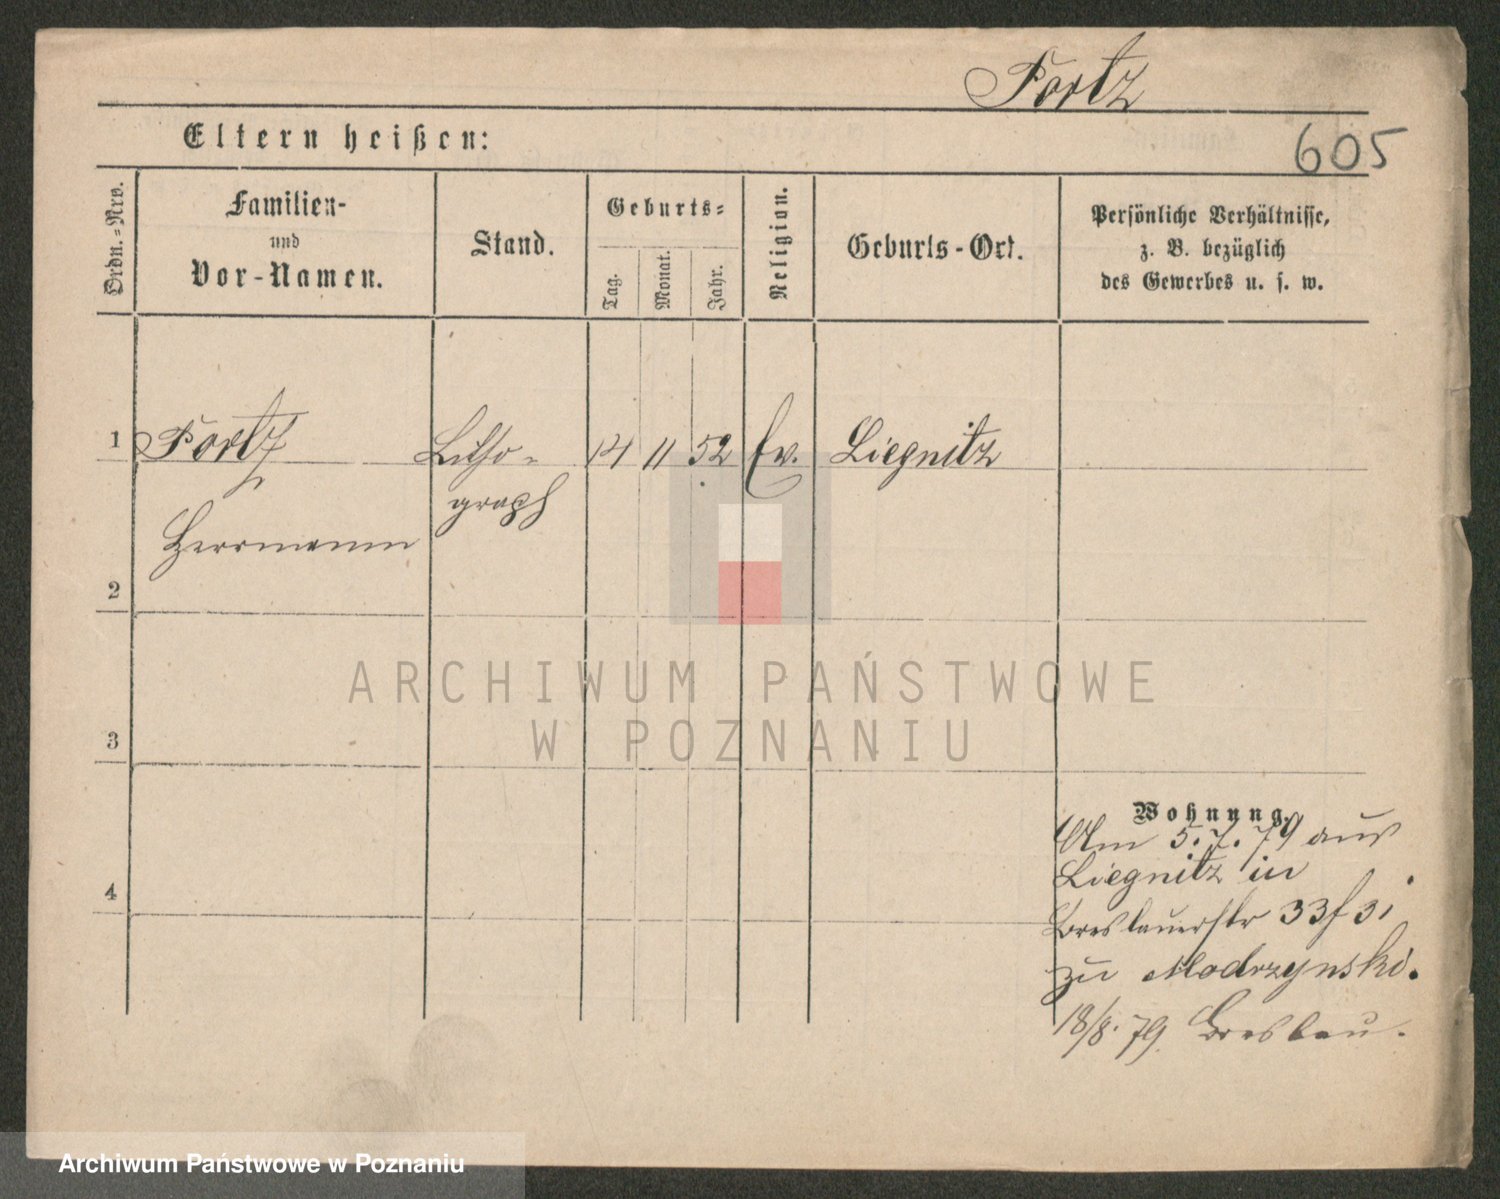 Portz
Eltern heißen:
605
Ordn.=Nro.
Familien-
und
Vor-Namen.
Stand.
Geburts=
Tag.
Monat.
Jahr.
Religion.
Geburts-Ort.
Persönliche Verhältnisse,
z. B. bezüglich
des Gewerbes u. s. w.
1
Portz
Litho-
14 11 52 Ev. Liegnitz
graph
Herrmann
2
3
4
ARCHIWUM PAŃSTWOWE
W POZNANIU
Wohnung.
Am 5.7.79 aus
Liegnitz in
Breslauerstr 33
zu Modrzynski.
18/8.79. Breslau.
Archiwum Państwowe w Poznaniu